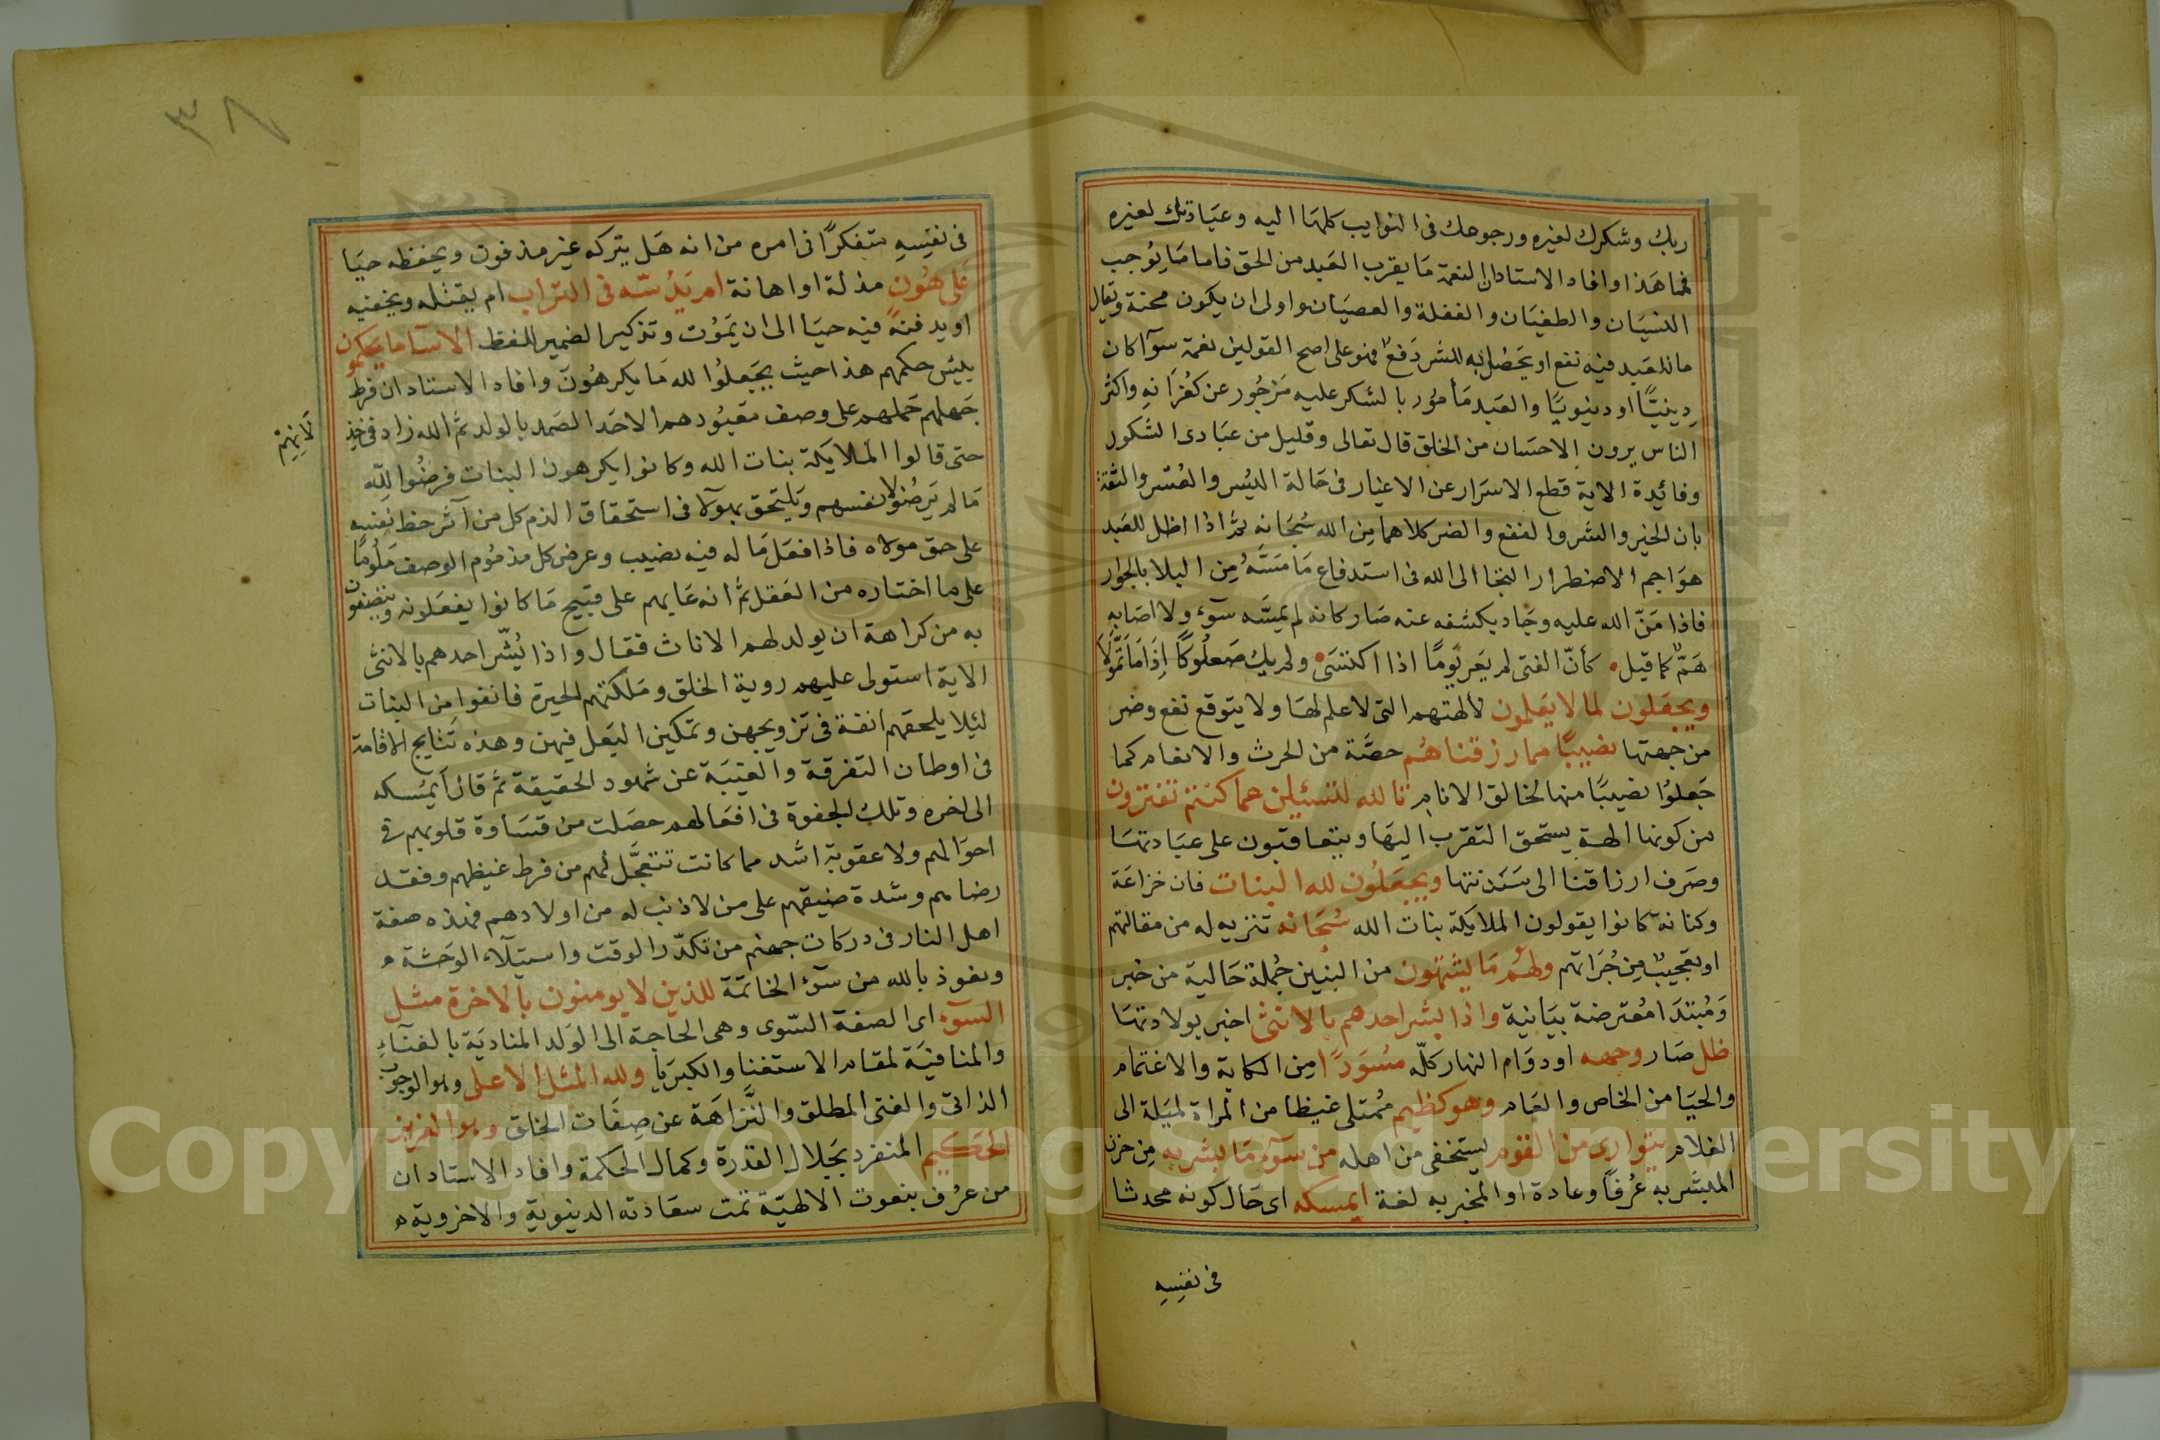 ربك وشكرك لغيره ورجوعك في النوايب كلها اليه وعبادتك لغيره
فما هذا وافاد الاستاد ان النعمة ما يقرب العبد من الحق فاما ما يوجب
النسيان والطغيان والغفلة والعصيان واولى ان يكون محنة ويقال
ما للعبد فيه نفع او يحصل به للشر دفع فهو على اصح القولين نعمة سوآ كان
دينيًّا او دنيويًا والعبد مأمور بالشكر عليه مزجور عن كفرانه واكثر
الناس يرون الاحسان من الخلق قال تعالى وقليل من عبادى الشكور
وفائدة الاية قطع الاسرار عن الاغيار في حالة اليسر والعسر والثقة
بان الخير والشر والنفع والضر كلاهما من الله سبحانه ثم اذا اظل للعبد
هواجم الاضطرار التجا الى الله في استدفاع ما مسه من البلا بالجوار
فاذا من الله عليه وجاد بكشفه عنه صار كانه لم يمسه سوء ولا اصابه
هم كما قيل كأن الفتى لم يعر يومًا اذا اكتسى ولم يك صعلوكًا اذا ما تمولا
ويجعلون لما لا يعلمون لالهتهم التى لا علم لها ولا يتوقع نفع وضر
من جهتها نصيبًا مما رزقناهم حصة من الحرث والانعام كما
جعلوا نصيبًا منها لخالق الانام تالله لتسئلن عما كنتم تفترون
من كونها الهة يستحق التقرب اليها ويتعاقبون على عبادتها
وصرف ارزاقنا الى سدنتها ويجعلون لله البنات فان خزاعة
وكنانة كانوا يقولون الملايكة بنات الله سبحانه تنزيه له من مقالتهم
او تعجيب من جراتهم ولهم ما يشتهون من البنين جملة حالية من خبر
ومبتدا معترضة بيانية واذا بشر احدهم بالانثى اخبر بولادتها
ظل صار وجهه او دوام النهار كله مسودًا من الكابة والاغتمام
والحيا من الخاص والعام وهو كظيم ممتلى غيظا من المراة لميله الى
الغلام يتوارى من القوم يستخفى من اهله من سوء ما بشر به من حزن
المبشر به عرفًا وعادة او المخبر به لغة ايمسكه اى حال كونه محدثا
في نفسه
٣٨
في نفسه متفكرًا في امره من انه هل يتركه غير مدفون ويحفظه حيا
على هون مذلة او اهانة ام يدسه في التراب ام يقتله ويخفيه
او يدفنه فيه حيا الى ان يموت وتذكير الضمير للفظ الا سآ ما يحكمون
بيس حكمهم هذا حيث يجعلوا لله ما يكرهون وافاد الاستاد ان فرط
جهلهم حملهم على وصف معبودهم الاحد الصمد بالولد ثم الله زاد في
لانهم
حتى قالوا الملايكة بنات الله وكانوا يكرهون البنات فرضوا لله
ما لم يرضوا لانفسهم ويلتحق بهولآ في استحقاق الذم كل من آثر حظ نفسه
على حق مولاه فاذا فعل ما له فيه نصيب وعرض كل مذموم الوصف ملومًا
على ما اختاره من العقل ثم انه عابهم على قبيح ما كانوا يفعلونه ويتصفون
به من كراهة ان يولد لهم الاناث فقال واذا بشر احدهم بالانثى
الاية استولى عليهم روية الخلق وملكتهم الحيرة فانفوا من البنات
ليلا يلحقهم انفة في تزويجهن وتمكين البعل فيهن وهذه نتايج الاقامة
في اوطان التفرقة والغيبة عن شهود الحقيقة ثم قال ايمسكه
الى اخره وتلك الجفوة في افعالهم حصلت من قساوة قلوبهم في
احوالهم ولا عقوبة اشد مما كانت تتعجل لهم من فرط غيظهم وفقد
رضاهم وشدة ضيقهم على من لا ذنب له من اولادهم فهذه صفة
اهل النار في دركات جهنم من تكدر الوقت واستيلاء الوحشة
ونعوذ بالله من سوء الخاتمة للذين لا يومنون بالاخرة مثل
السوء اى الصفة السوى وهى الحاجة الى الولد المنادية بالفناء
والمنافية لمقام الاستغنا والكبريا ولله المثل الاعلى وهو الوجوب
الذاتى والغنى المطلق والنزاهة عن صفات الخلق وهو العزيز
الحكيم المنفرد بجلال القدرة وكمال الحكمة وافاد الاستاد ان
من عرف بنعوت الالهية تمت سعادته الدينوية والاخروية
Copyright © King Saud University